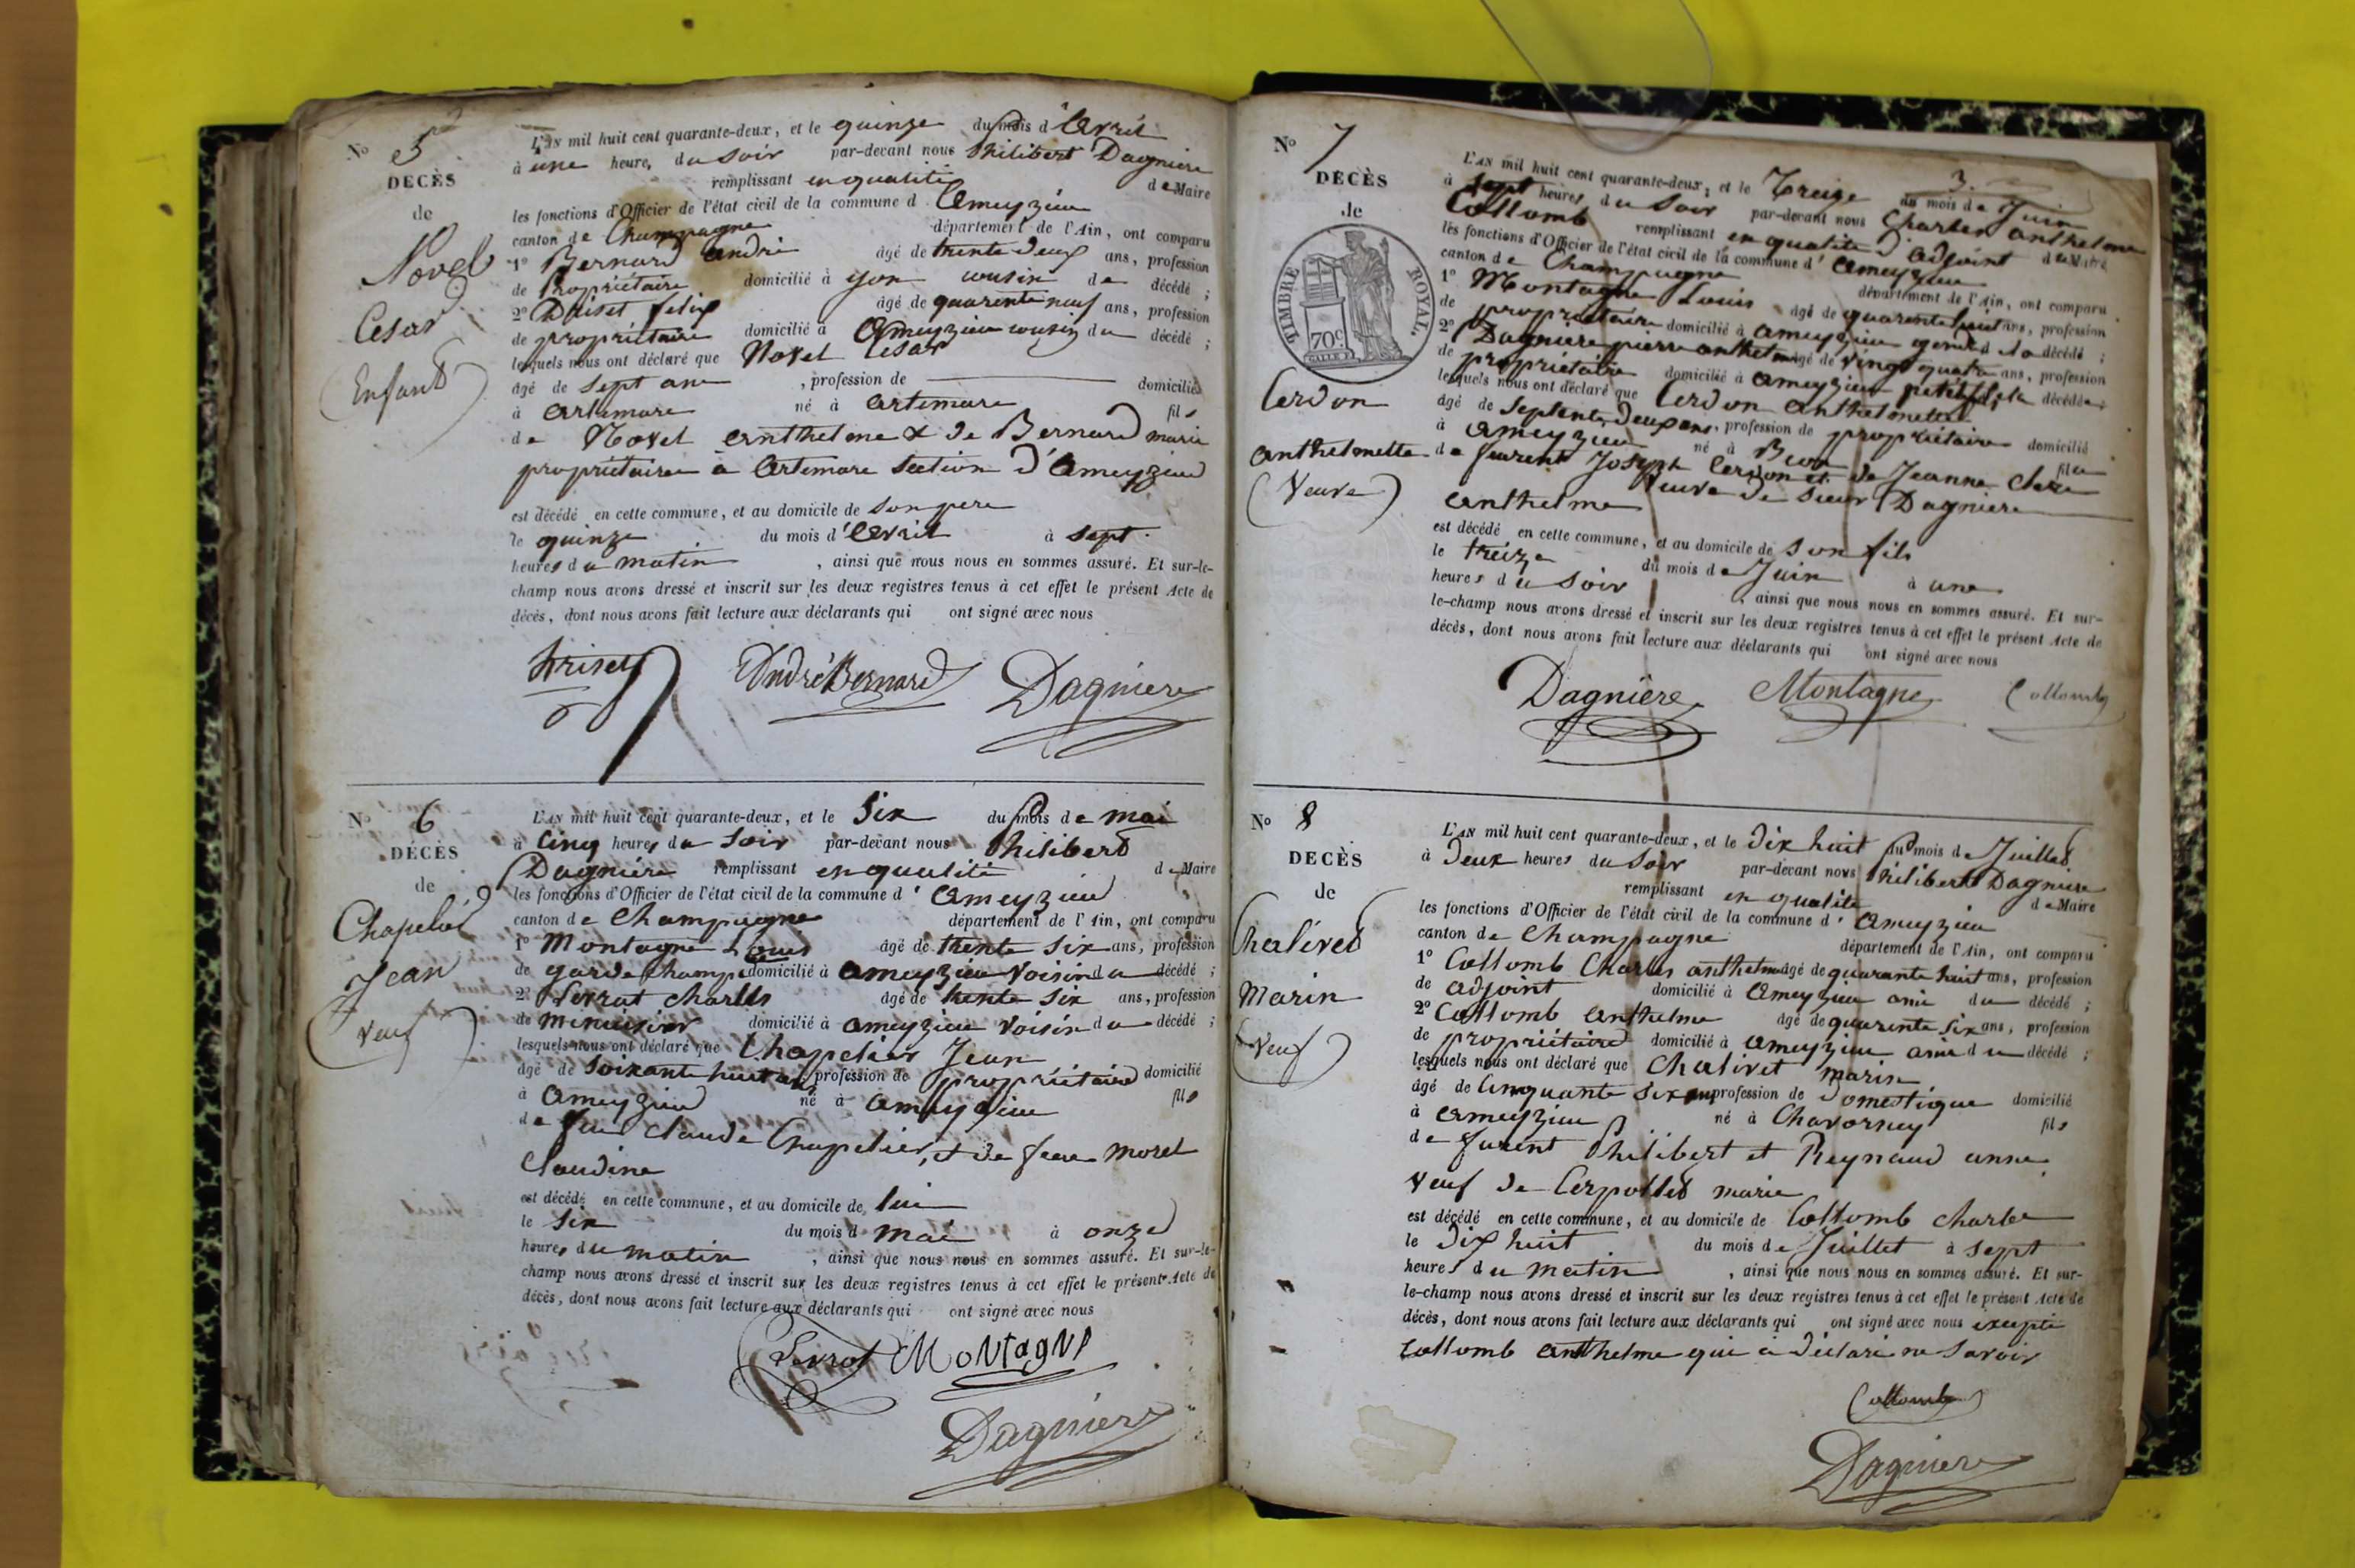 No 5
DECÈS
de
Novel
Cesar
(Enfant)
L'AN mil huit cent quarante-deux, et le quinze du mois d'Avril
à une heure, du soir par-devant nous Philibert Dagniere
remplissant en qualité de Maire
les fonctions d'Officier de l'état civil de la commune d Ameyzieu
canton de Champagne département de l'Ain, ont comparu
1° Bernard André âgé de trente deux ans, profession
de Propriétaire domicilié à yon cousin de décédé ;
2° felix âgé de quarente neuf ans, profession
de propriétaire domicilié à Ameyzieu cousin du décédé ;
lesquels nous ont déclaré que Novel Cesar
âgé de sept ans , profession de domicilié
à Artemare né à Artemare fils
de Novel Anthelme & de Bernard marie
propriétaires à Artemare Section d'Ameyzieu
est décédé en cette commune, et au domicile de son pere
le quinze du mois d'Avril à sept
heures du matin , ainsi que nous nous en sommes assuré. Et sur-le-
champ nous avons dressé et inscrit sur les deux registres tenus à cet effet le présent Acte de
décès, dont nous avons fait lecture aux déclarants qui ont signé avec nous
André Bernard Dagniere
No 6
DÉCÈS
de
Chapelier
Jean
(Veuf)
L'AN mil huit cent quarante-deux, et le Six du mois de mai
à Cinq heures du Soir par-devant nous Philibert
Dagniére remplissant en qualité de Maire
les fonctions d'Officier de l'état civil de la commune d' Ameyzieu
canton de Champagne département de l'Ain, ont comparu
1° Montagne Louis âgé de trente six ans, profession
de garde champ. domicilié à Ameyzieu Voisin du décédé ;
2° Serrat Charles âgé de trente six ans, profession
de menuisier domicilié à ameyzieu Voisin du décédé ;
lesquels nous ont déclaré que Chapelier Jean
âgé de soixante huit ans profession de propriétaire domicilié
à Ameyzieu né à Ameyzieu fils
de feu Claude Chapelier, et de feue Morel
Claudine
est décédé en cette commune, et au domicile de lui
le Six du mois d mai à onze
heures du matin , ainsi que nous nous en sommes assuré. Et sur-le-
champ nous avons dressé et inscrit sur les deux registres tenus à cet effet le présent Acte de
décès, dont nous avons fait lecture aux déclarants qui ont signé avec nous
Serrat Montagne
Dagniere
3.
No 7
DECÈS
de
TIMBRE ROYAL.
70c
Cerdon
Anthelmette
(Veuve)
L'AN mil huit cent quarante-deux, et le Treize du mois de Juin
à sept heures du Soir par-devant nous Charles Anthelme
Collomb remplissant en qualité d'adjoint de Maire
les fonctions d'Officier de l'état civil de la commune d' Ameyzieu
canton de Champagne département de l'Ain, ont comparu
1° Montagne Louis âgé de quarente huit ans, profession
de propriétaire domicilié à Ameyzieu décédé ;
2° Dagniere pierre anthelme âgé de vingt quatre ans, profession
de propriétaire domicilié à Ameyzieu décédée ;
lesquels nous ont déclaré que Cerdon Anthelmette
âgé de Septente deux ans, profession de propriétaire domicilié
à Ameyzieu né à Beon fille
de furent Joseph Cerdon et de Jeanne Clere
Veuve de Sieur Dagniere
Anthelme
est décédé en cette commune, et au domicile de son fils
le treize du mois de Juin à une
heures du Soir , ainsi que nous nous en sommes assuré. Et sur-
le-champ nous avons dressé et inscrit sur les deux registres tenus à cet effet le présent Acte de
décès, dont nous avons fait lecture aux déclarants qui ont signé avec nous
Dagniere Montagne Collomb
No 8
DECÈS
de
Chalivet
Marin
(Veuf)
L'AN mil huit cent quarante-deux, et le Dix huit du mois de Juillet
à Deux heures du Soir par-devant nous Philibert Dagniere
remplissant en qualité de Maire
les fonctions d'Officier de l'état civil de la commune d' Ameyzieu
canton de Champagne département de l'Ain, ont comparu
1° Collomb Charles anthelme âgé de quarante huit ans, profession
de adjoint domicilié à Ameyzieu ami du décédé ;
2° Collomb Anthelme âgé de quarente six ans, profession
de propriétaire domicilié à Ameyzieu ami du décédé ;
lesquels nous ont déclaré que Chalivet Marin
âgé de Cinquante six ans profession de Domestique domicilié
à Ameyzieu né à Chavorney fils
de furent Philibert et Reynaud anne
Veuf de Cerpollet marie
est décédé en cette commune, et au domicile de Collomb Charles
le Dix huit du mois de Juillet à sept
heures du matin , ainsi que nous nous en sommes assuré. Et sur-
le-champ nous avons dressé et inscrit sur les deux registres tenus à cet effet le présent Acte de
décès, dont nous avons fait lecture aux déclarants qui ont signé avec nous excepté
Collomb Anthelme qui a déclaré ne savoir
Collomb
Dagniere